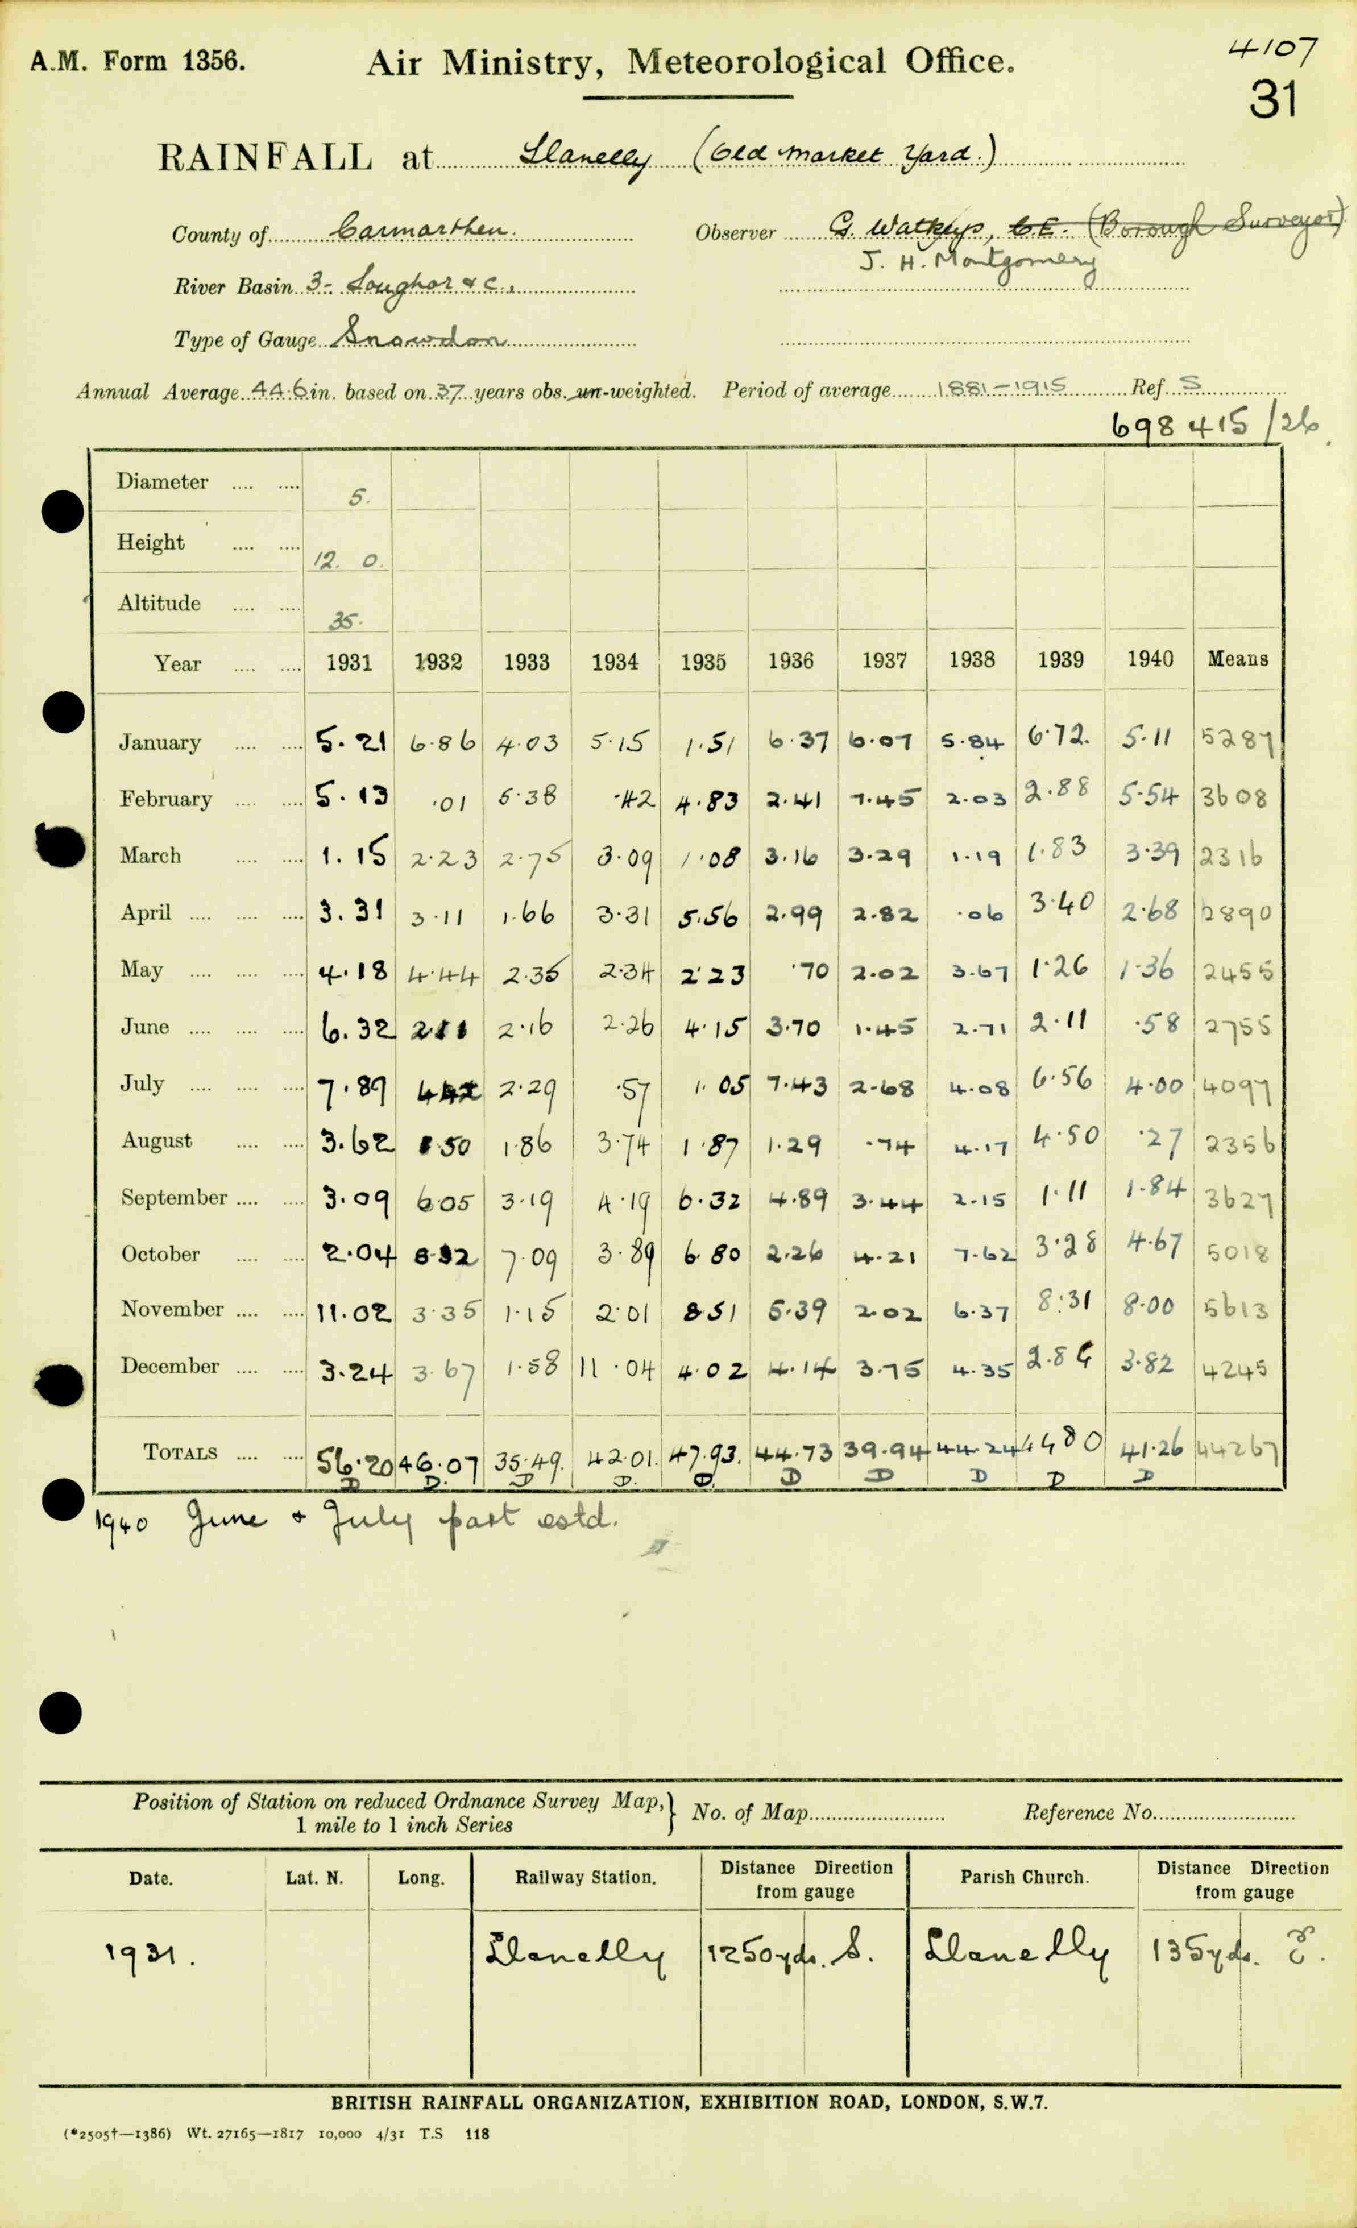 A.M. Form 1356.
Air Ministry, Meteorological Office.
4107
31
RAINFALL at Llanelly (Old Market Yard.)
County of Carmarthen. Observer G. Watkeys, C.E. (Borough Surveyor)
J. H. Montgomery
River Basin 3- Loughor & c.,
Type of Gauge Snowdon
Annual Average 44.6 in. based on 37 years obs. un-weighted. Period of average 1881-1915 Ref. S
698 415/26
Diameter .... .... 5.
Height .... .... 12. 0.
Altitude .... .... 35.
Year .... .... 1931 1932 1933 1934 1935 1936 1937 1938 1939 1940 Means
January .... .... 5.21 6.86 4.03 5.15 1.51 6.37 6.07 5.84 6.72. 5.11 5287
February .... .... 5.13 .01 5.38 .42 4.83 2.41 7.45 2.03 2.88 5.54 3608
March .... .... 1.15 2.23 2.75 3.09 1.08 3.16 3.29 1.19 1.83 3.39 2316
April .... .... .... 3.31 3.11 1.66 3.31 5.56 2.99 2.82 .06 3.40 2.68 2890
May .... .... .... 4.18 4.44 2.35 2.34 2.23 .70 2.02 3.67 1.26 1.36 2455
June .... .... .... 6.32 2.11 2.16 2.26 4.15 3.70 1.45 2.71 2.11 .58 2755
July .... .... .... 7.89 4.42 2.29 .57 1.05 7.43 2.68 4.08 6.56 4.00 4097
August .... .... 3.62 1.50 1.86 3.74 1.87 1.29 .74 4.17 4.50 .27 2356
September .... .... 3.09 6.05 3.19 4.19 6.32 4.89 3.44 2.15 1.11 1.84 3627
October .... .... 2.04 8.32 7.09 3.89 6.80 2.26 4.21 7.62 3.28 4.67 5018
November .... .... 11.02 3.35 1.15 2.01 8.51 5.39 2.02 6.37 8.31 8.00 5613
December .... .... 3.24 3.67 1.58 11.04 4.02 4.14 3.75 4.35 2.84 3.82 4245
TOTALS .... .... 56.20 46.07 35.49. 42.01. 47.93. 44.73 39.94 44.24 44 80 41.26 44267
D D. D D. D. D D D D D
1940 June & July part estd.
Position of Station on reduced Ordnance Survey Map, } No. of Map Reference No.
1 mile to 1 inch Series
Date. Lat. N. Long. Railway Station. Distance Direction from gauge Parish Church. Distance Direction from gauge
1931. Llanelly 1250 yds. S. Llanelly 135 yds. E.
BRITISH RAINFALL ORGANIZATION, EXHIBITION ROAD, LONDON, S.W.7.
(*2505†—1386) Wt. 27165—1817 10,000 4/31 T.S 118